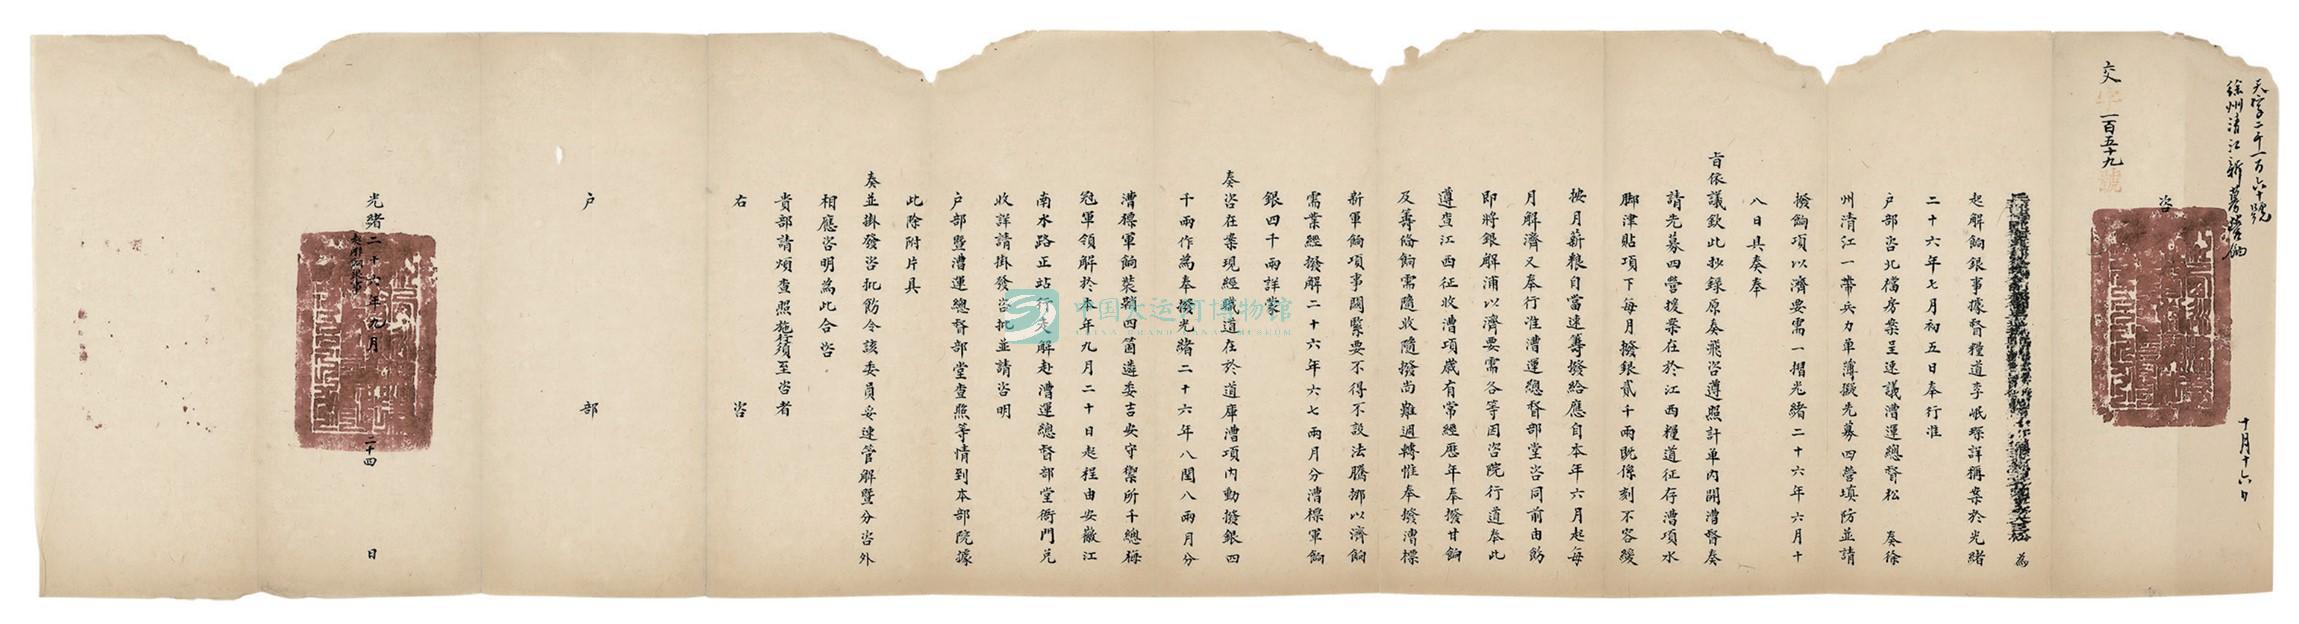 天字二千一百六十號
徐州清江新募營餉
十月十六日
交字一百五十九號
咨
為
起解餉銀事據督糧道李岷琛詳稱案於光緒
二十六年七月初五日奉行准
戶部咨北檔房案呈速議漕運總督松 奏徐
州清江一帶兵力單薄擬先募四營填防並請
撥餉項以濟要需一摺光緒二十六年六月十
八日具奏奉
旨依議欽此抄錄原奏飛咨遵照計單內開漕督奏
請先募四營援案在於江西糧道征存漕項水
腳津貼項下每月撥銀貳千兩既係刻不容緩
按月薪糧自當速籌撥給應自本年六月起每
月解濟又奉行准漕運總督部堂咨同前由飭
即將銀解浦以濟要需各等因咨院行道奉此
遵查江西征收漕項歲有常經歷年奉撥甘餉
及籌備餉需隨收隨撥尚難週轉惟奉撥漕標
新軍餉項事關緊要不得不設法騰挪以濟餉
需業經撥解二十六年六七兩月分漕標軍餉
銀四千兩詳蒙
奏咨在案現經職道在於道庫漕項內動撥銀四
千兩作為奉撥光緒二十六年八閏八兩月分
漕標軍餉裝鞘四箇遴委吉安守禦所千總梅
冠軍領解於本年九月二十日起程由安徽江
南水路正站行走解赴漕運總督部堂衙門兌
收詳請掛發咨批並請咨明
戶部暨漕運總督部堂查照等情到本部院據
此除附片具
奏並掛發咨批飭令該委員妥速管解暨分咨外
相應咨明為此合咨
貴部請煩查照施行須至咨者
右 咨
戶 部
光緒二十六年九月二十四 日
起解餉銀事
中国大运河博物馆
CHINA GRAND CANAL MUSEUM